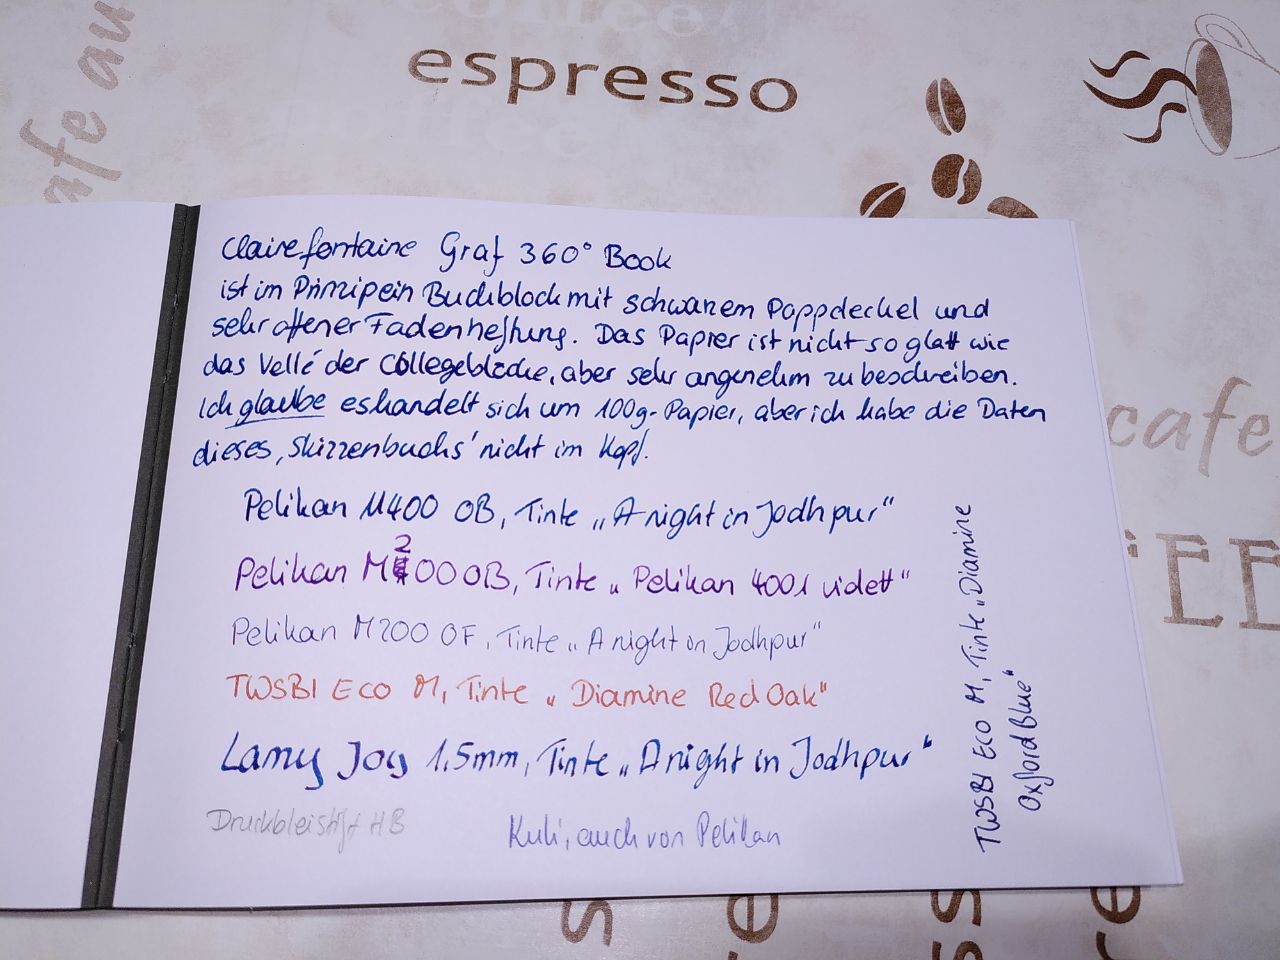 coffee
cafe au
espresso
Clairefontaine Graf 360° Book
ist im Prinzip ein Buchblock mit schwarzem Pappdeckel und
sehr offener Fadenheftung. Das Papier ist nicht so glatt wie
das Vellé der Collegeblöcke, aber sehr angenehm zu beschreiben.
Ich glaube es handelt sich um 100g-Papier, aber ich habe die Daten
dieses ‚Skizzenbuchs‘ nicht im Kopf.
Pelikan M400 OB, Tinte „A night in Jodhpur“
Pelikan M200 OB, Tinte „Pelikan 4001 violett“
Pelikan M200 OF, Tinte „A night in Jodhpur“
TWSBI ECO M, Tinte „Diamine Red Oak“
Lamy Joy 1.5mm, Tinte „A night in Jodhpur“
Druckbleistift HB
Kuli, auch von Pelikan
TWSBI ECO M, Tinte „Diamine
Oxford Blue“
cafe